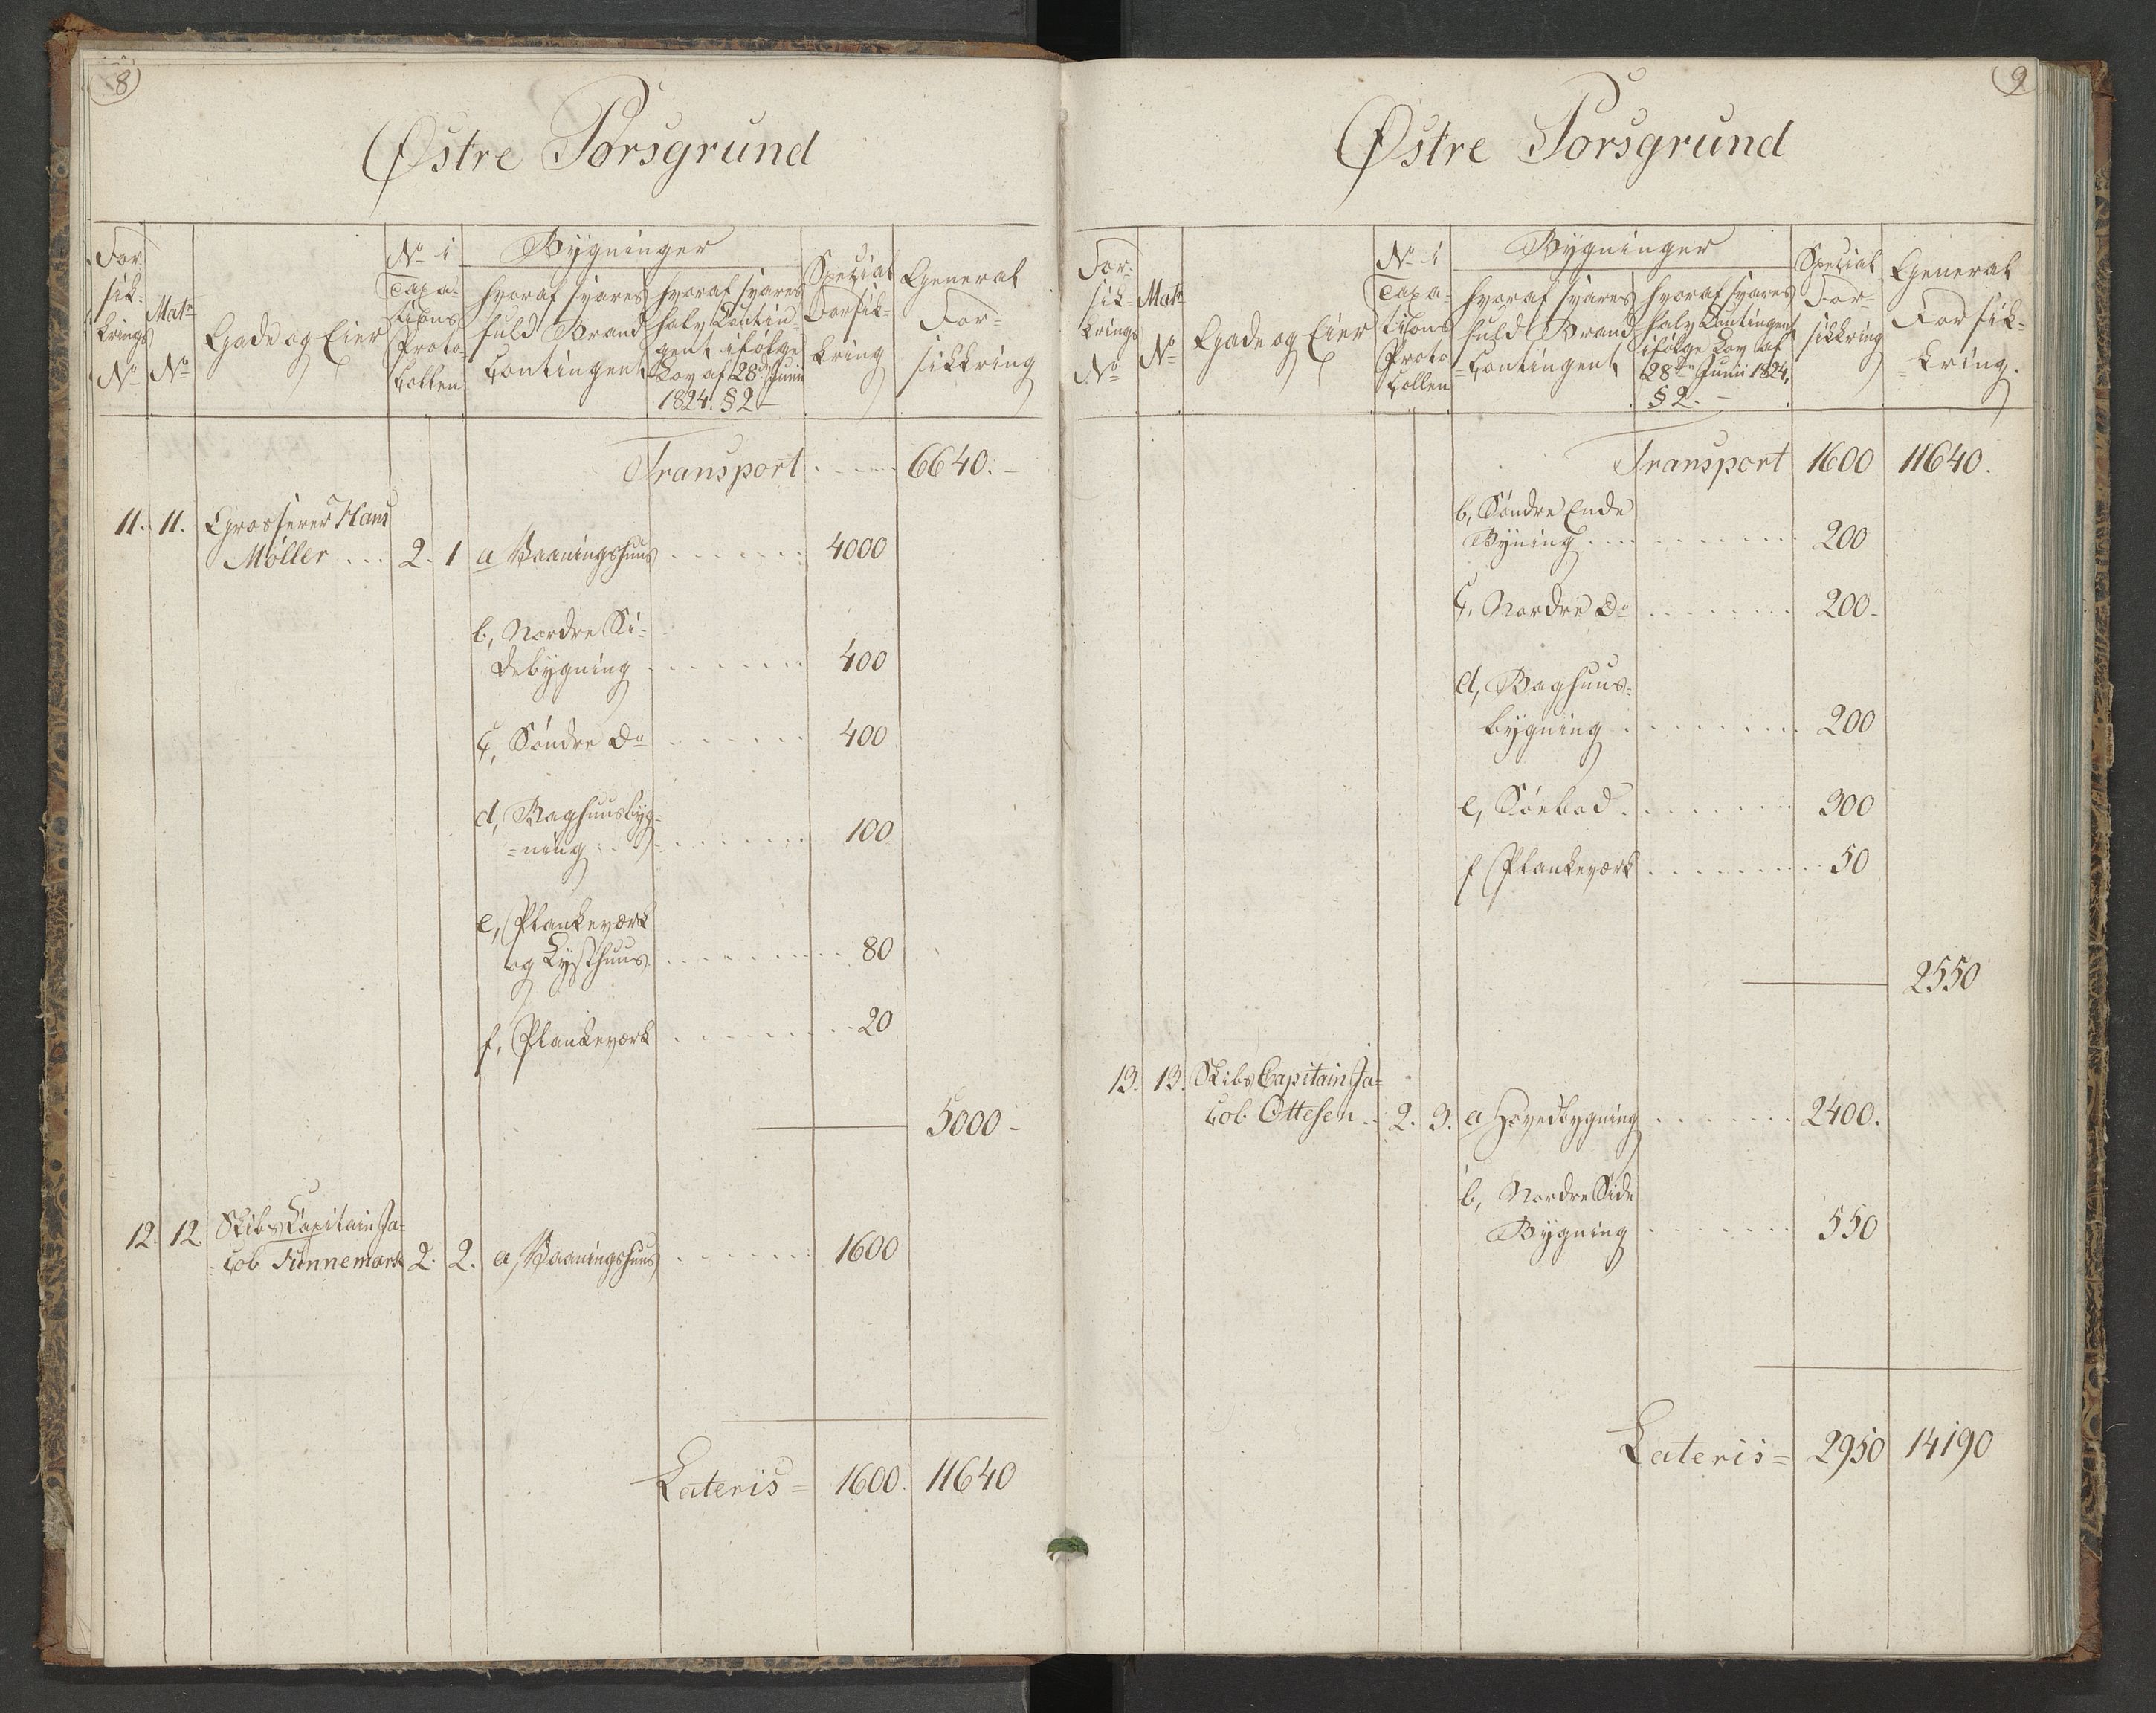 8
Østre Porsgrund
For-
sik-
krings
No
Matr
No
Gade og Eier
No 1
Taxa-
tions
Proto-
collen
Bygninger
hvoraf svares
fuld Brand
Contingent
hvoraf svares
halv Contin-
gent ifølge
Lov af 28de Junii
1824. § 2
Special
Forsik-
kring
General
For-
sikkring
Transport . . . . 6640. -
11. 11. Grosserer Hans
Møller . . . 2. 1 a Vaaningshuus . . . . . . 4000
b, Nordre Si-
debygning . . . . . . 400
c, Søndre Do . . . . . . 400
d, Baghuusbyg-
=ning . . . . . . 100
e, Plankeværk
og Lysthuus . . . . . . 80
f, Plankeværk . . . . . . 20
5000 -
12. 12 Skibs Capitain Ja-
cob Fünnemark 2. 2. a, Vaaningshuus . . . . . . 1600
Lateris = 1600. 11640
9
Østre Porsgrund
For-
sik-
krings
No
Matr
No
Gade og Eier
No 1
Taxa-
tions
Proto
collen
Bygninger
hvoraf svares
fuld Brand
=Contingent
hvoraf svares
halv Contingent
ifølge Lov af
28de Junii 1824,
§ 2. -
Special
For-
sikkring
General
Forsik-
=kring.
Transport 1600 11640.
b, Søndre Ende
Byning . . . . . . 200
c, Nordre Do . . . . . . 200-
d, Baghuus-
bygning . . . . . . 200
e, Söebod . . . . . . 300
f Plankeværk . . . . . . 50
2550
13. 13. Skibs Capitain Ja-
cob Ottesen . . 2. 3. a Hovedbygning . . . . . . 2400.
b, Nordre Side
Bygning . . . . . . 550
Lateris = 2950 14190